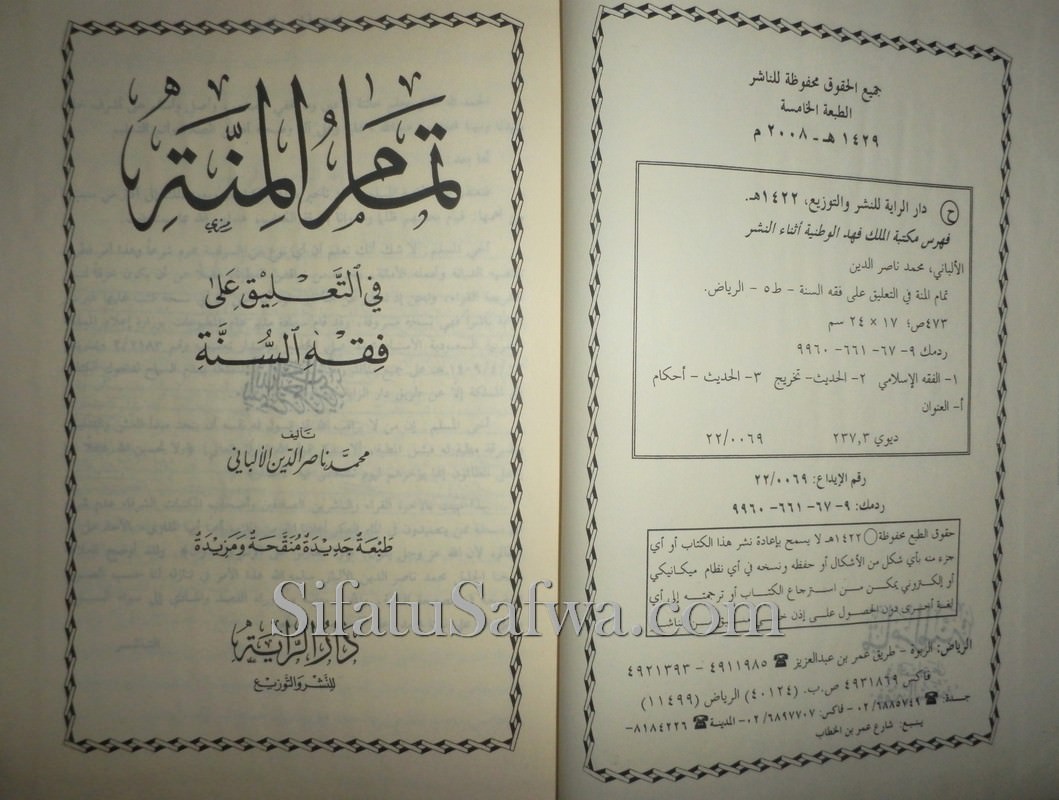 تمام المنة
في التعليق على
فقه السنة
تأليف
محمد ناصر الدين الألباني
طبعة جديدة منقحة ومزيدة
دار الراية
للنشر والتوزيع
جميع الحقوق محفوظة للناشر
الطبعة الخامسة
١٤٢٩ هـ - ٢٠٠٨ م
ح دار الراية للنشر والتوزيع، ١٤٢٢هـ.
فهرس مكتبة الملك فهد الوطنية أثناء النشر
الألباني، محمد ناصر الدين
تمام المنة في التعليق على فقه السنة - ط٥ - الرياض.
٤٧٣ص؛ ١٧ × ٢٤ سم
ردمك ٩-٦٧-٦٦١-٩٩٦٠
١- الفقه الإسلامي ٢- الحديث- تخريج ٣- الحديث - أحكام
أ- العنوان
ديوي ٢٣٧,٣ ٢٢/٠٠٦٩
رقم الإيداع: ٢٢/٠٠٦٩
ردمك: ٩-٦٧-٦٦١-٩٩٦٠
حقوق الطبع محفوظة ١٤٢٢هـ لا يسمح بإعادة نشر هذا الكتاب أو أي
جزء منه بأي شكل من الأشكال أو حفظه ونسخه في أي نظام ميكانيكي
أو إلكتروني يمكن من استرجاع الكتاب أو ترجمته إلى أي
لغة أخرى دون الحصول على إذن
الرياض: الربوة - طريق عمر بن عبدالعزيز ☎ ٤٩١١٩٨٥ - ٤٩٢١٣٩٣
فاكس ٤٩٣١٨٦٩ ص.ب. (٤٠١٢٤) الرياض (١١٤٩٩)
جدة: ☎ ٠٢/٦٨٨٥٧٤٩ - فاكس: ٠٢/٦٨٩٧٧٠٧ - المدينة ☎ ٨١٨٤٢٢٦-
ينبع: شارع عمر بن الخطاب
SifatuSafwa.com